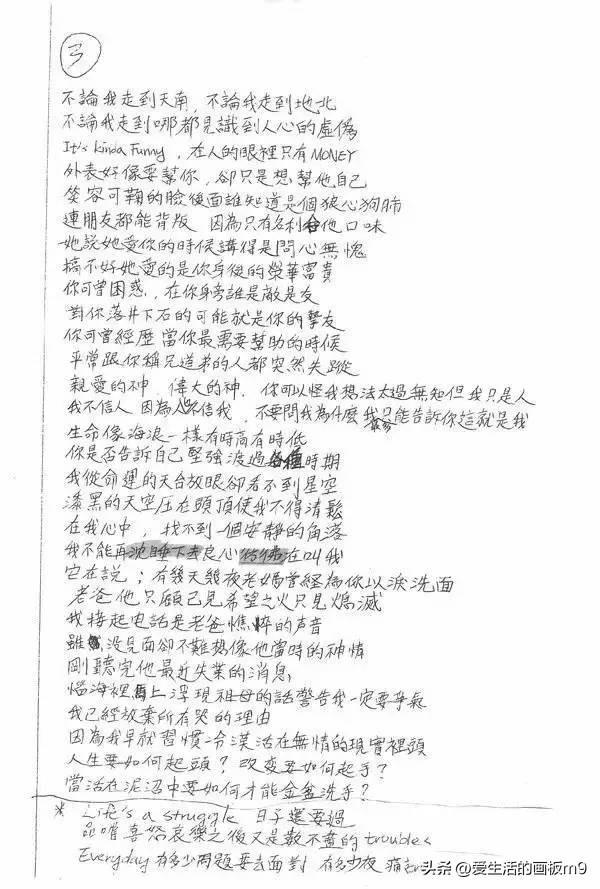 3
不論我走到天南，不論我走到地北
不論我走到哪都見識到人心的虛偽
It's kinda Funny，在人的眼裡只有MONEY
外表好像要幫你，卻只是想幫他自己
笑容可鞠的臉後面誰知道是個狼心狗肺
連朋友都能背叛 因為只有名利合他口味
她說她愛你的時候講得是問心無愧
搞不好她愛的是你身後的榮華富貴
你可曾困惑，在你身旁誰是敵是友
對你落井下石的可能就是你的摯友
你可曾經歷當你最需要幫助的時候
平常跟你稱兄道弟的人都突然失蹤
親愛的神，偉大的神，你可以怪我想法太過無知但我只是人
我不信人 因為人不信我，不要問我為什麼我只能告訴你這就是我
生命像海浪一樣有時高有時低
你是否告訴自己堅強渡過各種時期
我從命運的天台放眼卻看不到星空
漆黑的天空压在頭頂使我不得清鬆
在我心中，找不到一個安靜的角落
我不能再沈睡下去良心彷彿在叫我
它在説；有幾天幾夜老媽曾経為你以淚洗面
老爸他只顧己見希望之火只見熄滅
我接起电話是老爸憔悴的声音
雖 没見面卻不難想像他當時的神情
剛聽完他最近失業的消息
腦海裡馬上浮現祖母的話警告我一定要爭氣
我已經放棄所有哭的理由
因為我早就習慣一冷漠活在無情的現實裡頭
人生要如何起頭？改变要如何起手？
當活在泥沼中要如何才能金盆洗手？
* Life's a struggle 日子還要過
品嚐喜怒哀樂之後又是數不盡的troubles
Everyday 有多少問題要去面對 有多少夜 痛
头条 @爱生活的画板m9